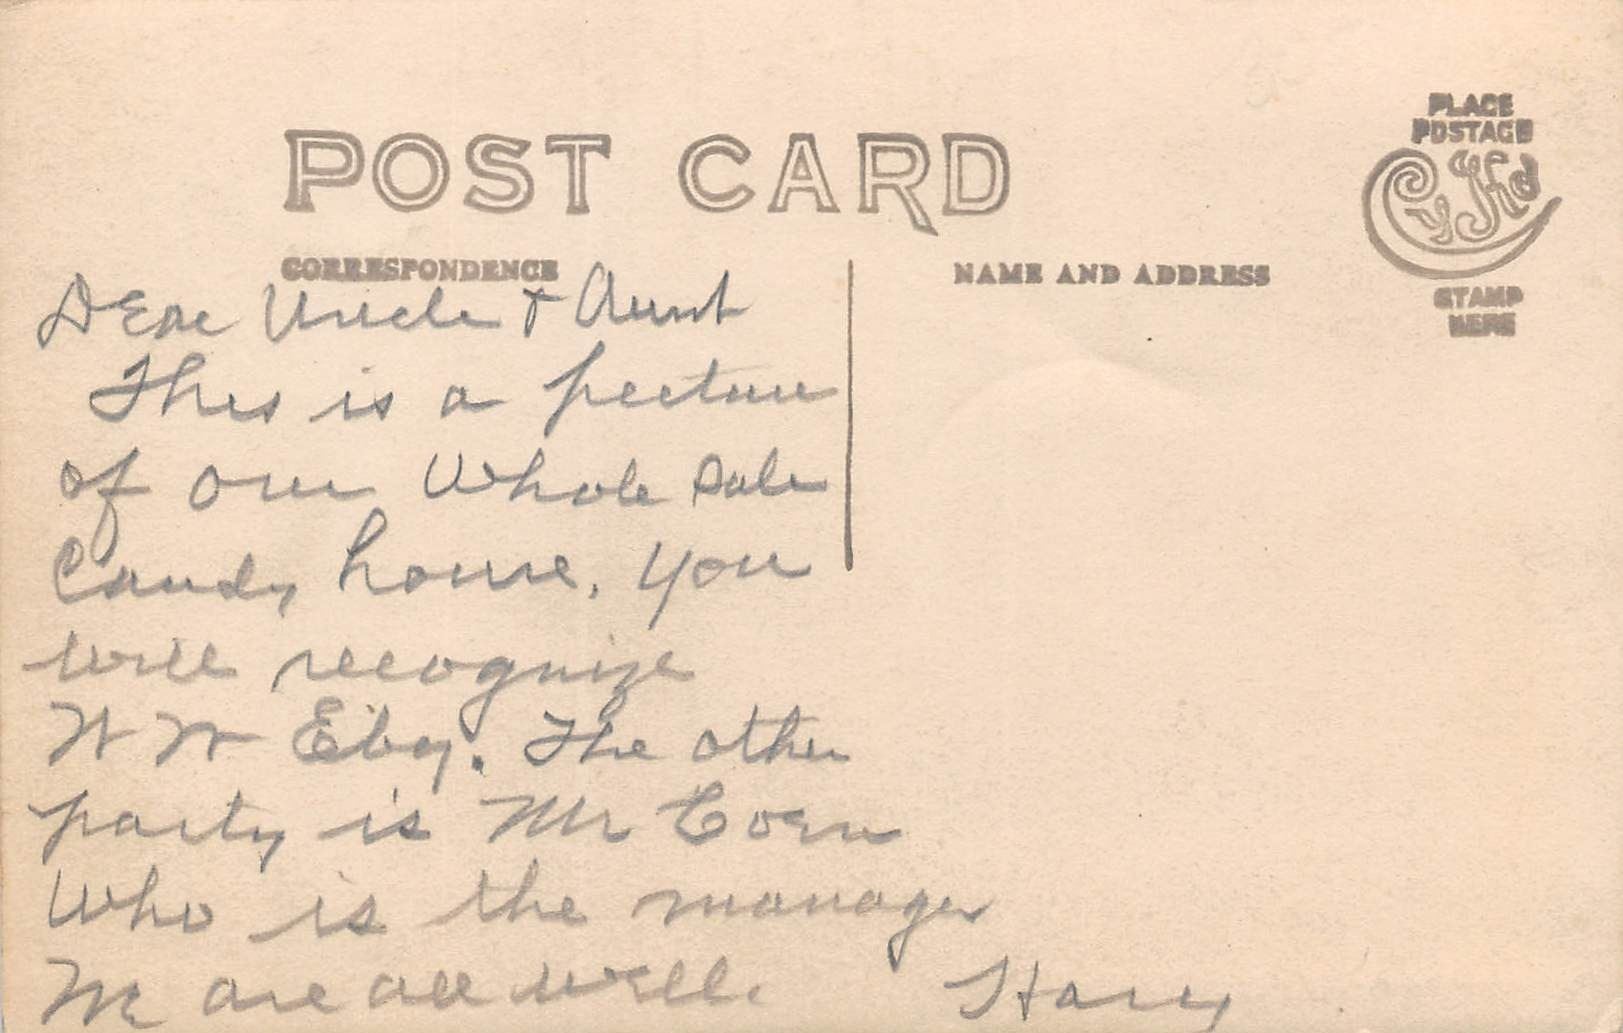 PLACE
POSTAGE
POST CARD
Cyko
CORRESPONDENCE
NAME AND ADDRESS
STAMP
HERE
Dear Uncle & Aunt
This is a picture
of our Whole Sale
Candy house. You
will recognize
W W Eby. The other
party is Mr Coen
Who is the manager
We are all well. Harry